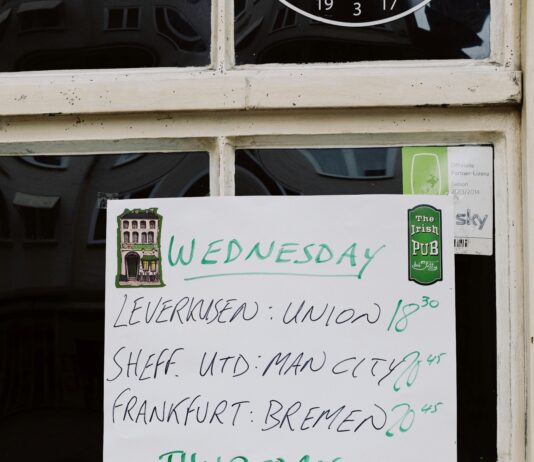 19 3 17
Offizielle
Partner-Lizenz
Saison
2013/2014
sky
The
Irish
PUB
WEDNESDAY
LEVERKUSEN : UNION 18 30
SHEFF. UTD : MAN CITY 20 45
FRANKFURT : BREMEN 20 45
THURSDAY